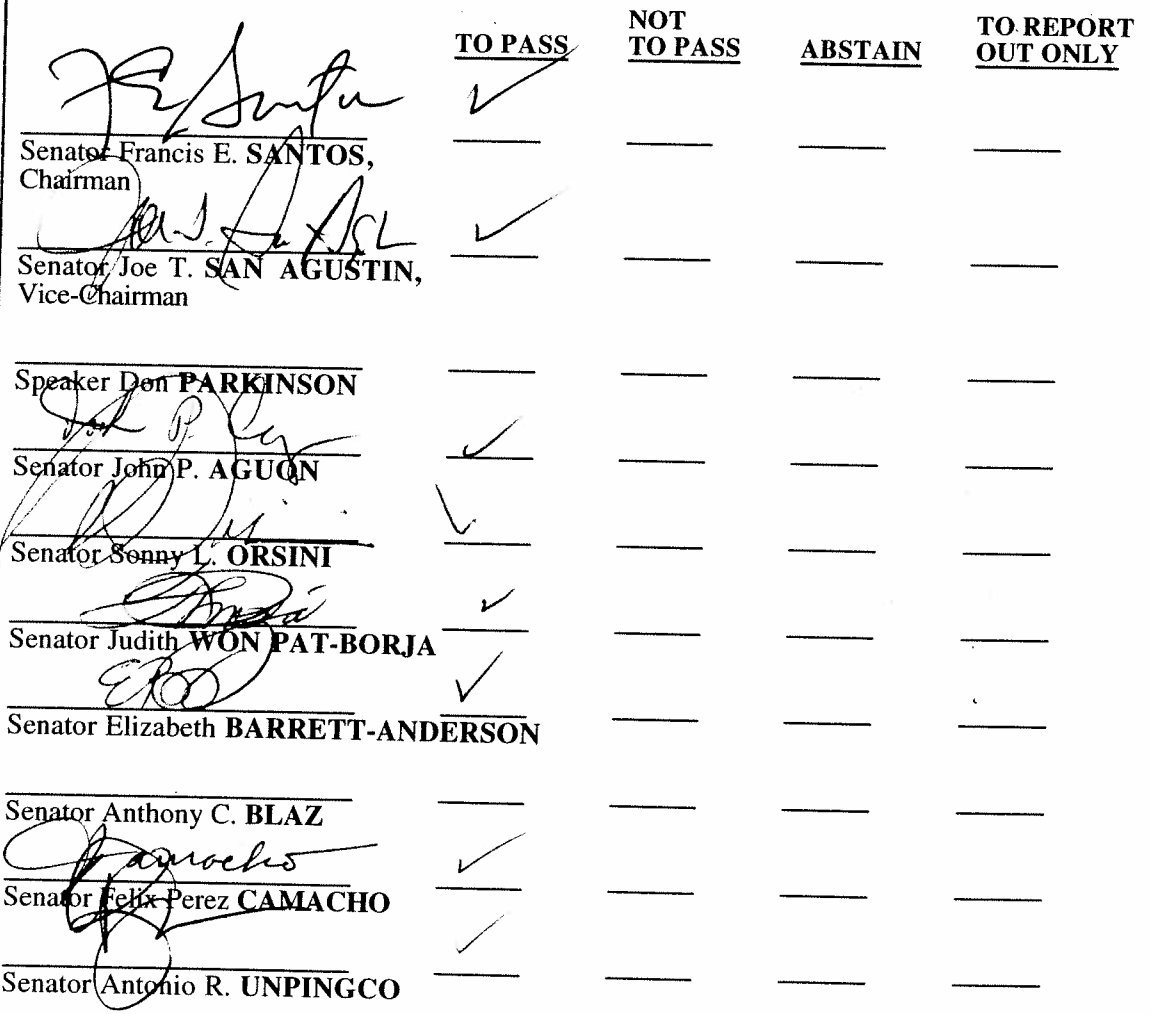 TO PASS NOT TO PASS ABSTAIN TO REPORT OUT ONLY
Senator Francis E. SANTOS,
Chairman
Senator Joe T. SAN AGUSTIN,
Vice-Chairman
Speaker Don PARKINSON
Senator John P. AGUON
Senator Sonny L. ORSINI
Senator Judith WON PAT-BORJA
Senator Elizabeth BARRETT-ANDERSON
Senator Anthony C. BLAZ
Camacho
Senator Felix Perez CAMACHO
Senator Antonio R. UNPINGCO